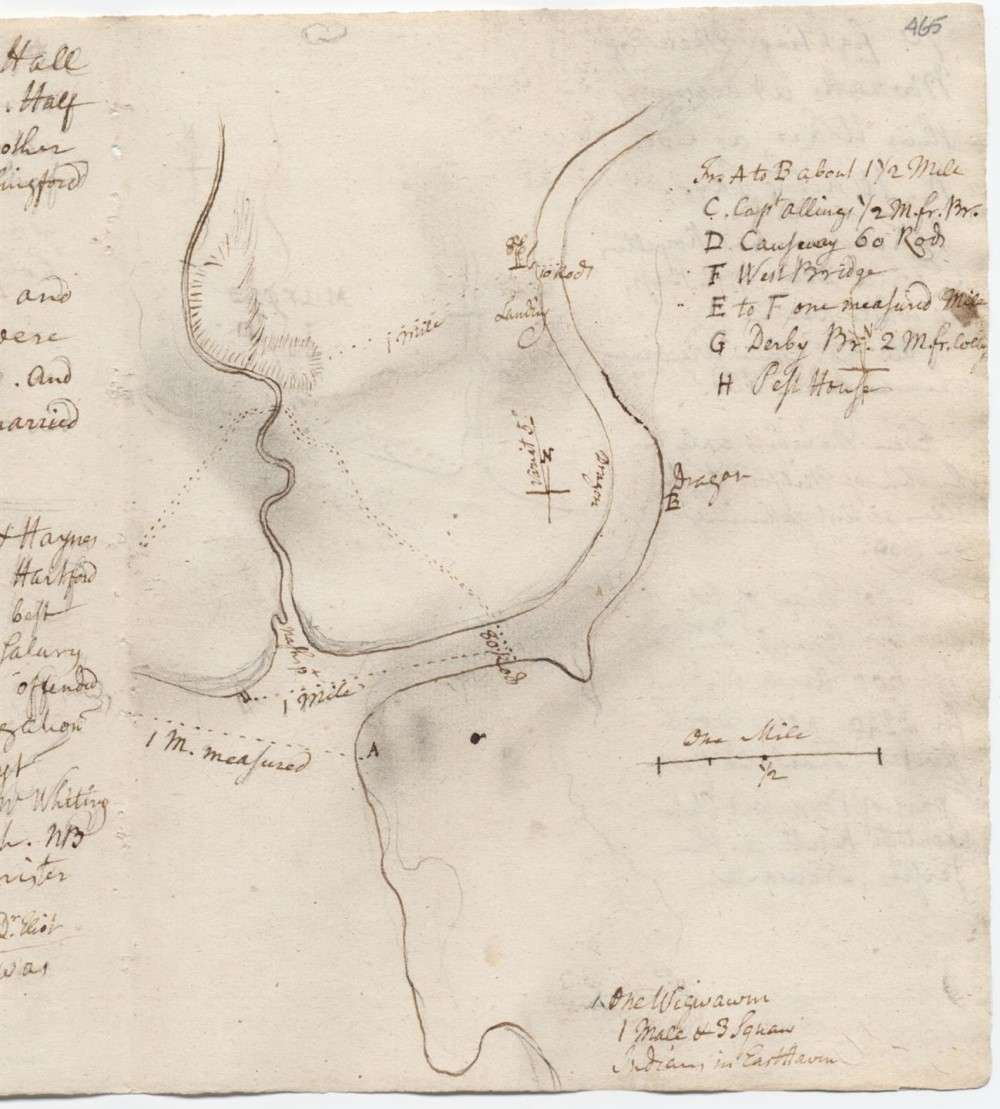 465
Hall
. Half
other
lingford
and
were
. And
married
& Haynes
Hartford
best
Salary
offended
Whiting
h. NB
Dr. Eliot
was
Fr. A to B about 1 1/2 Mile
C. Capt Allings 1/2 M. fr. Br.
D Causeway 60 Rods
F West Bridge
E to F one measured Mile
G Derby Br. 2 M. fr. Colleg
H Pest House
N
10 Rods
Landing
1 mile
N
Dragon
Dragon
B
80 Rod
1 Mile
1 M. measured
A
One Mile
1/2
One Wigwawm
1 Male & 3 Squaw
Indians in East Haven